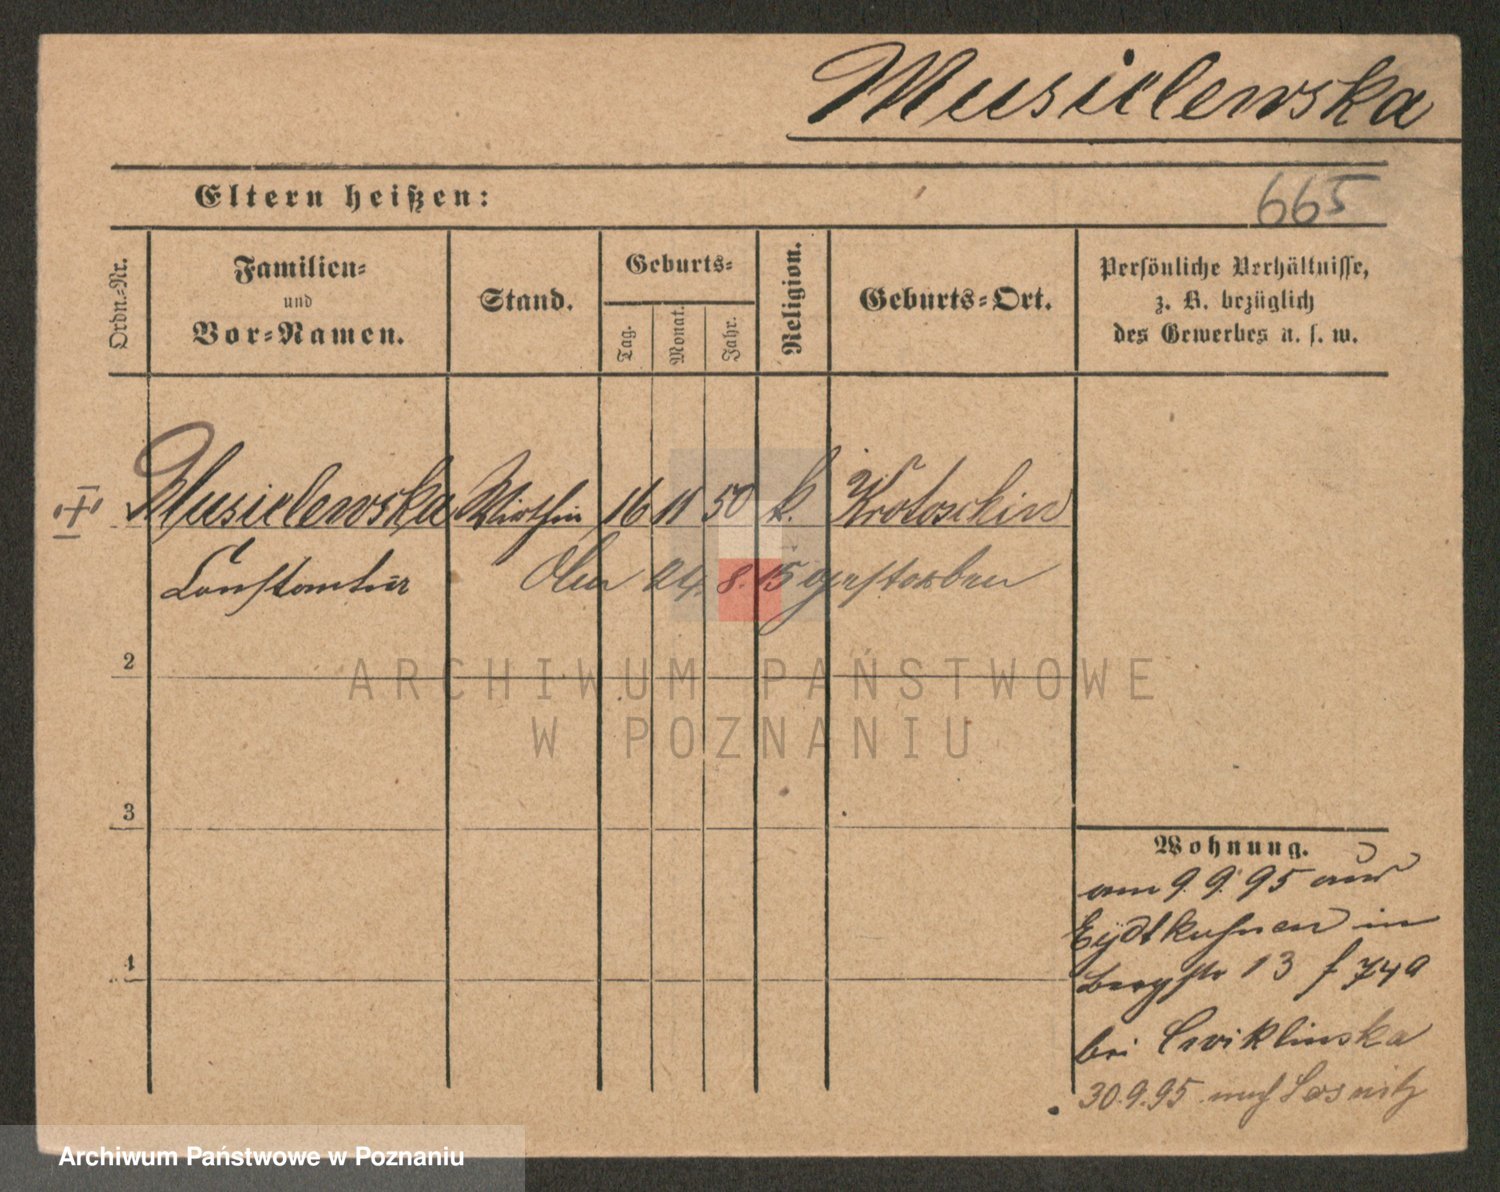 Musielewska
Eltern heißen:
665
Ordn.-Nr.
Familien-
und
Vor-Namen.
Stand.
Geburts-
Tag.
Monat.
Jahr.
Religion.
Geburts-Ort.
Persönliche Verhältnisse,
z. B. bezüglich
des Gewerbes u. s. w.
Musielewska Wirthin 16 11 50 k. Krotoschin
Constantia
24. 8. 15 gestorben
2
ARCHIWUM PAŃSTWOWE
W POZNANIU
3
4
Wohnung.
am 9.9.95 aus
Eydtkuhnen in
Bergstr 13 f 749
bei Cwiklinska
30.9.95 nach
Archiwum Państwowe w Poznaniu